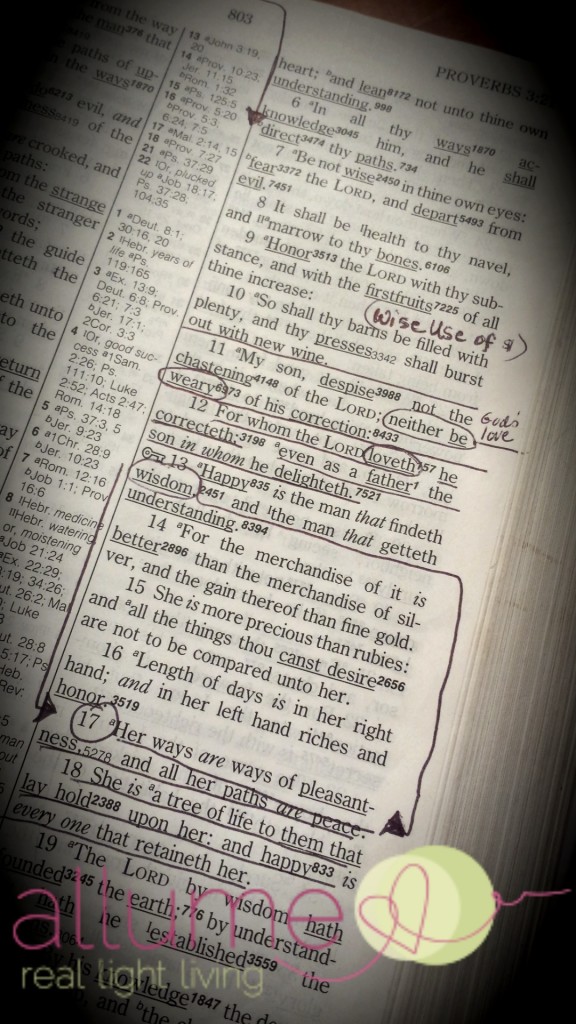 803
PROVERBS 3:
from the way
man³⁷⁶ that
paths of up-
in the ways¹⁸⁷⁰
evil, and
of the
are crooked, and
paths:
from the strange
the stranger
words;
the guide
eth unto
to the
return
of the
13 ᵃJohn 3:19,
20
14 ᵃProv. 10:23;
Jer. 11:15
ᵇRom. 1:32
15 ᵃPs. 125:5
16 ᵃProv. 5:20
ᵇProv. 5:3;
6:24; 7:5
17 ᵃMal. 2:14, 15
18 ᵃProv. 7:27
21 ᵃPs. 37:29
22 ᴵOr, plucked
up ᵃJob 18:17;
Ps. 37:28;
104:35
1 ᵃDeut. 8:1;
30:16, 20
2 ᴵHebr. years of
life ᵃPs.
119:165
3 ᵃEx. 13:9;
Deut. 6:8; Prov.
6:21; 7:3
ᵇJer. 17:1;
2Cor. 3:3
4 ᴵOr, good suc-
cess ᵃ1Sam.
2:26; Ps.
111:10; Luke
2:52; Acts 2:47;
Rom. 14:18
5 ᵃPs. 37:3, 5
ᵇJer. 9:23
6 ᵃ1Chr. 28:9
ᵇJer. 10:23
7 ᵃRom. 12:16
ᵇJob 1:1; Prov
16:6
8 ᴵHebr. medicine
ᴵᴵHebr. watering
or, moistening
ᵃJob 21:24
ᵃEx. 22:29;
:19; 34:26;
ut. 26:2; Mal
Luke
ut. 28:8
5:17; Ps
Heb.
Rev:
heart; ᵇand lean⁸¹⁷² not unto thine own
understanding.⁹⁹⁸
6 ᵃIn all thy ways¹⁸⁷⁰ ac-
knowledge³⁰⁴⁵ him, and he shall
ᵇdirect³⁴⁷⁴ thy paths.⁷³⁴
7 ᵃBe not wise²⁴⁵⁰ in thine own eyes:
ᵇfear³³⁷² the LORD, and depart⁵⁴⁹³ from
evil.⁷⁴⁵¹
8 It shall be ᴵhealth to thy navel,
and ᴵᴵᵃmarrow to thy bones.⁶¹⁰⁶
9 ᵃHonor³⁵¹³ the LORD with thy sub-
stance, and with the firstfruits⁷²²⁵ of all
thine increase:
10 ᵃSo shall thy barns be filled with
plenty, and thy presses³³⁴² shall burst
out with new wine.
(wise Use of $)
11 ᵃMy son, despise³⁹⁸⁸ not the
chastening⁴¹⁴⁸ of the LORD; neither be
weary⁶⁹⁷³ of his correction:⁸⁴³³
God's
love
12 For whom the LORD loveth¹⁵⁷ he
correcteth;³¹⁹⁸ ᵃeven as a father¹ the
son in whom he delighteth.⁷⁵²¹
13 ᵃHappy⁸³⁵ is the man that findeth
wisdom,²⁴⁵¹ and ᴵthe man that getteth
understanding.⁸³⁹⁴
14 ᵃFor the merchandise of it is
better²⁸⁹⁶ than the merchandise of sil-
ver, and the gain thereof than fine gold.
15 She is more precious than rubies:
and ᵃall the things thou canst desire²⁶⁵⁶
are not to be compared unto her.
16 ᵃLength of days is in her right
hand; and in her left hand riches and
honor.³⁵¹⁹
17 ᵃHer ways are ways of pleasant-
ness,⁵²⁷⁸ and all her paths are peace.
18 She is ᵃa tree of life to them that
lay hold²³⁸⁸ upon her: and happy⁸³³ is
every one that retaineth her.
19 ᵃThe LORD by wisdom hath
founded³²⁴⁵ the earth;⁷⁷⁶ by understand-
hath he ᴵestablished³⁵⁵⁹ the
his knowledge¹⁸⁴⁷ the de
and ᵇthe
allume
real light living